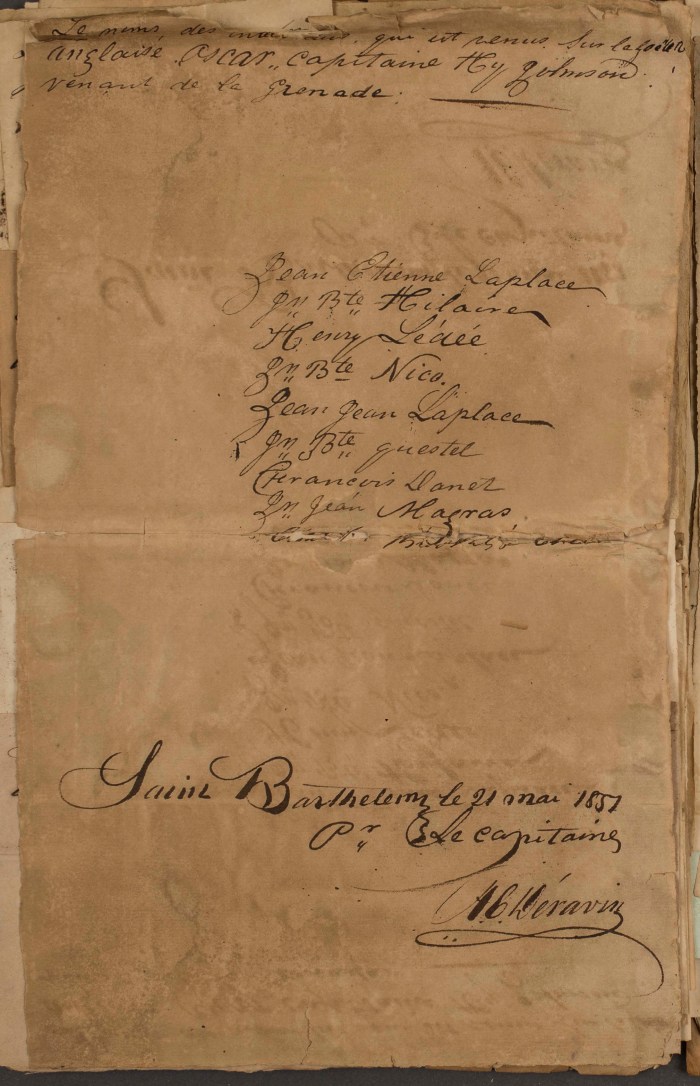 Le noms, des qui est venus Sur la
anglaise Oscar,, Capitaine Hy Johnson
venant de la Grenade.
Jean Etienne Laplace
Jn Bte Hilaire
Henry Lédée
Jn Bte Nico.
Jean Jean Laplace
Jn Bte questel
François Danet
Jn Jean Magras
Saint Barthelemy le 21 mai 1851
Pr Le capitaine